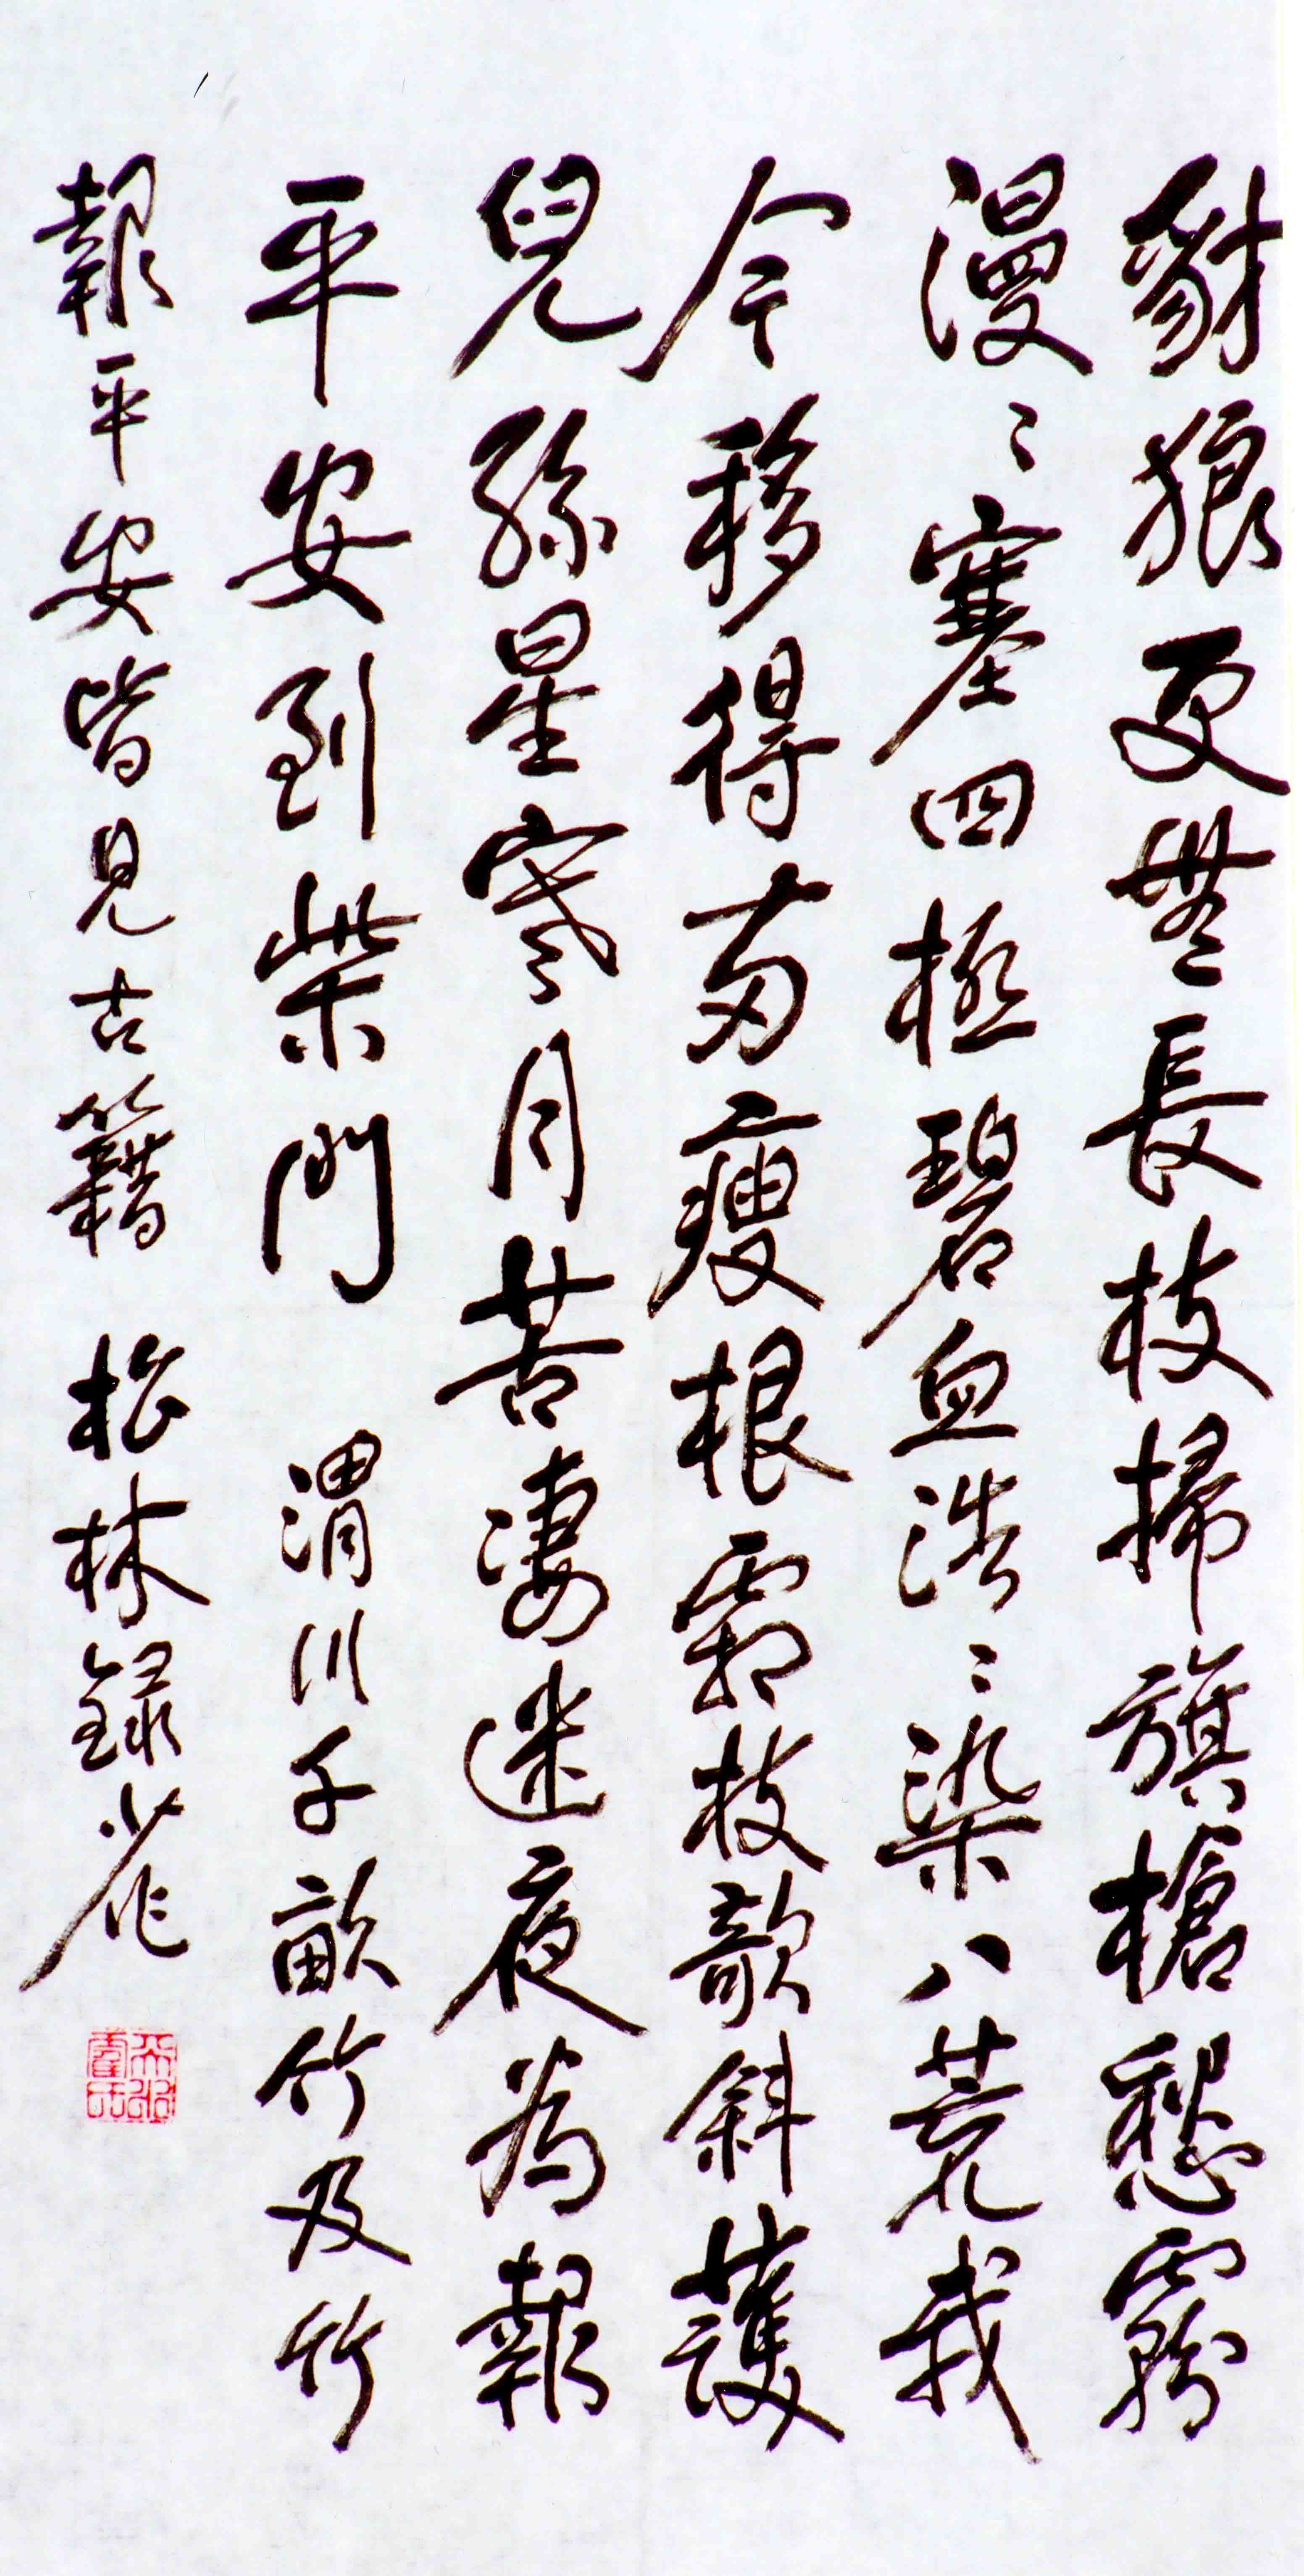 豺狼更無長枝掃旗槍愁霧
漫〻塞四極碧血浩〻染八荒我
今移得苗瘦根霜枝欹斜護
兒孫星寒月苦凄迷夜為報
平安到柴門 渭川千畝竹及竹
報平安皆見古籍 松林錄舊作